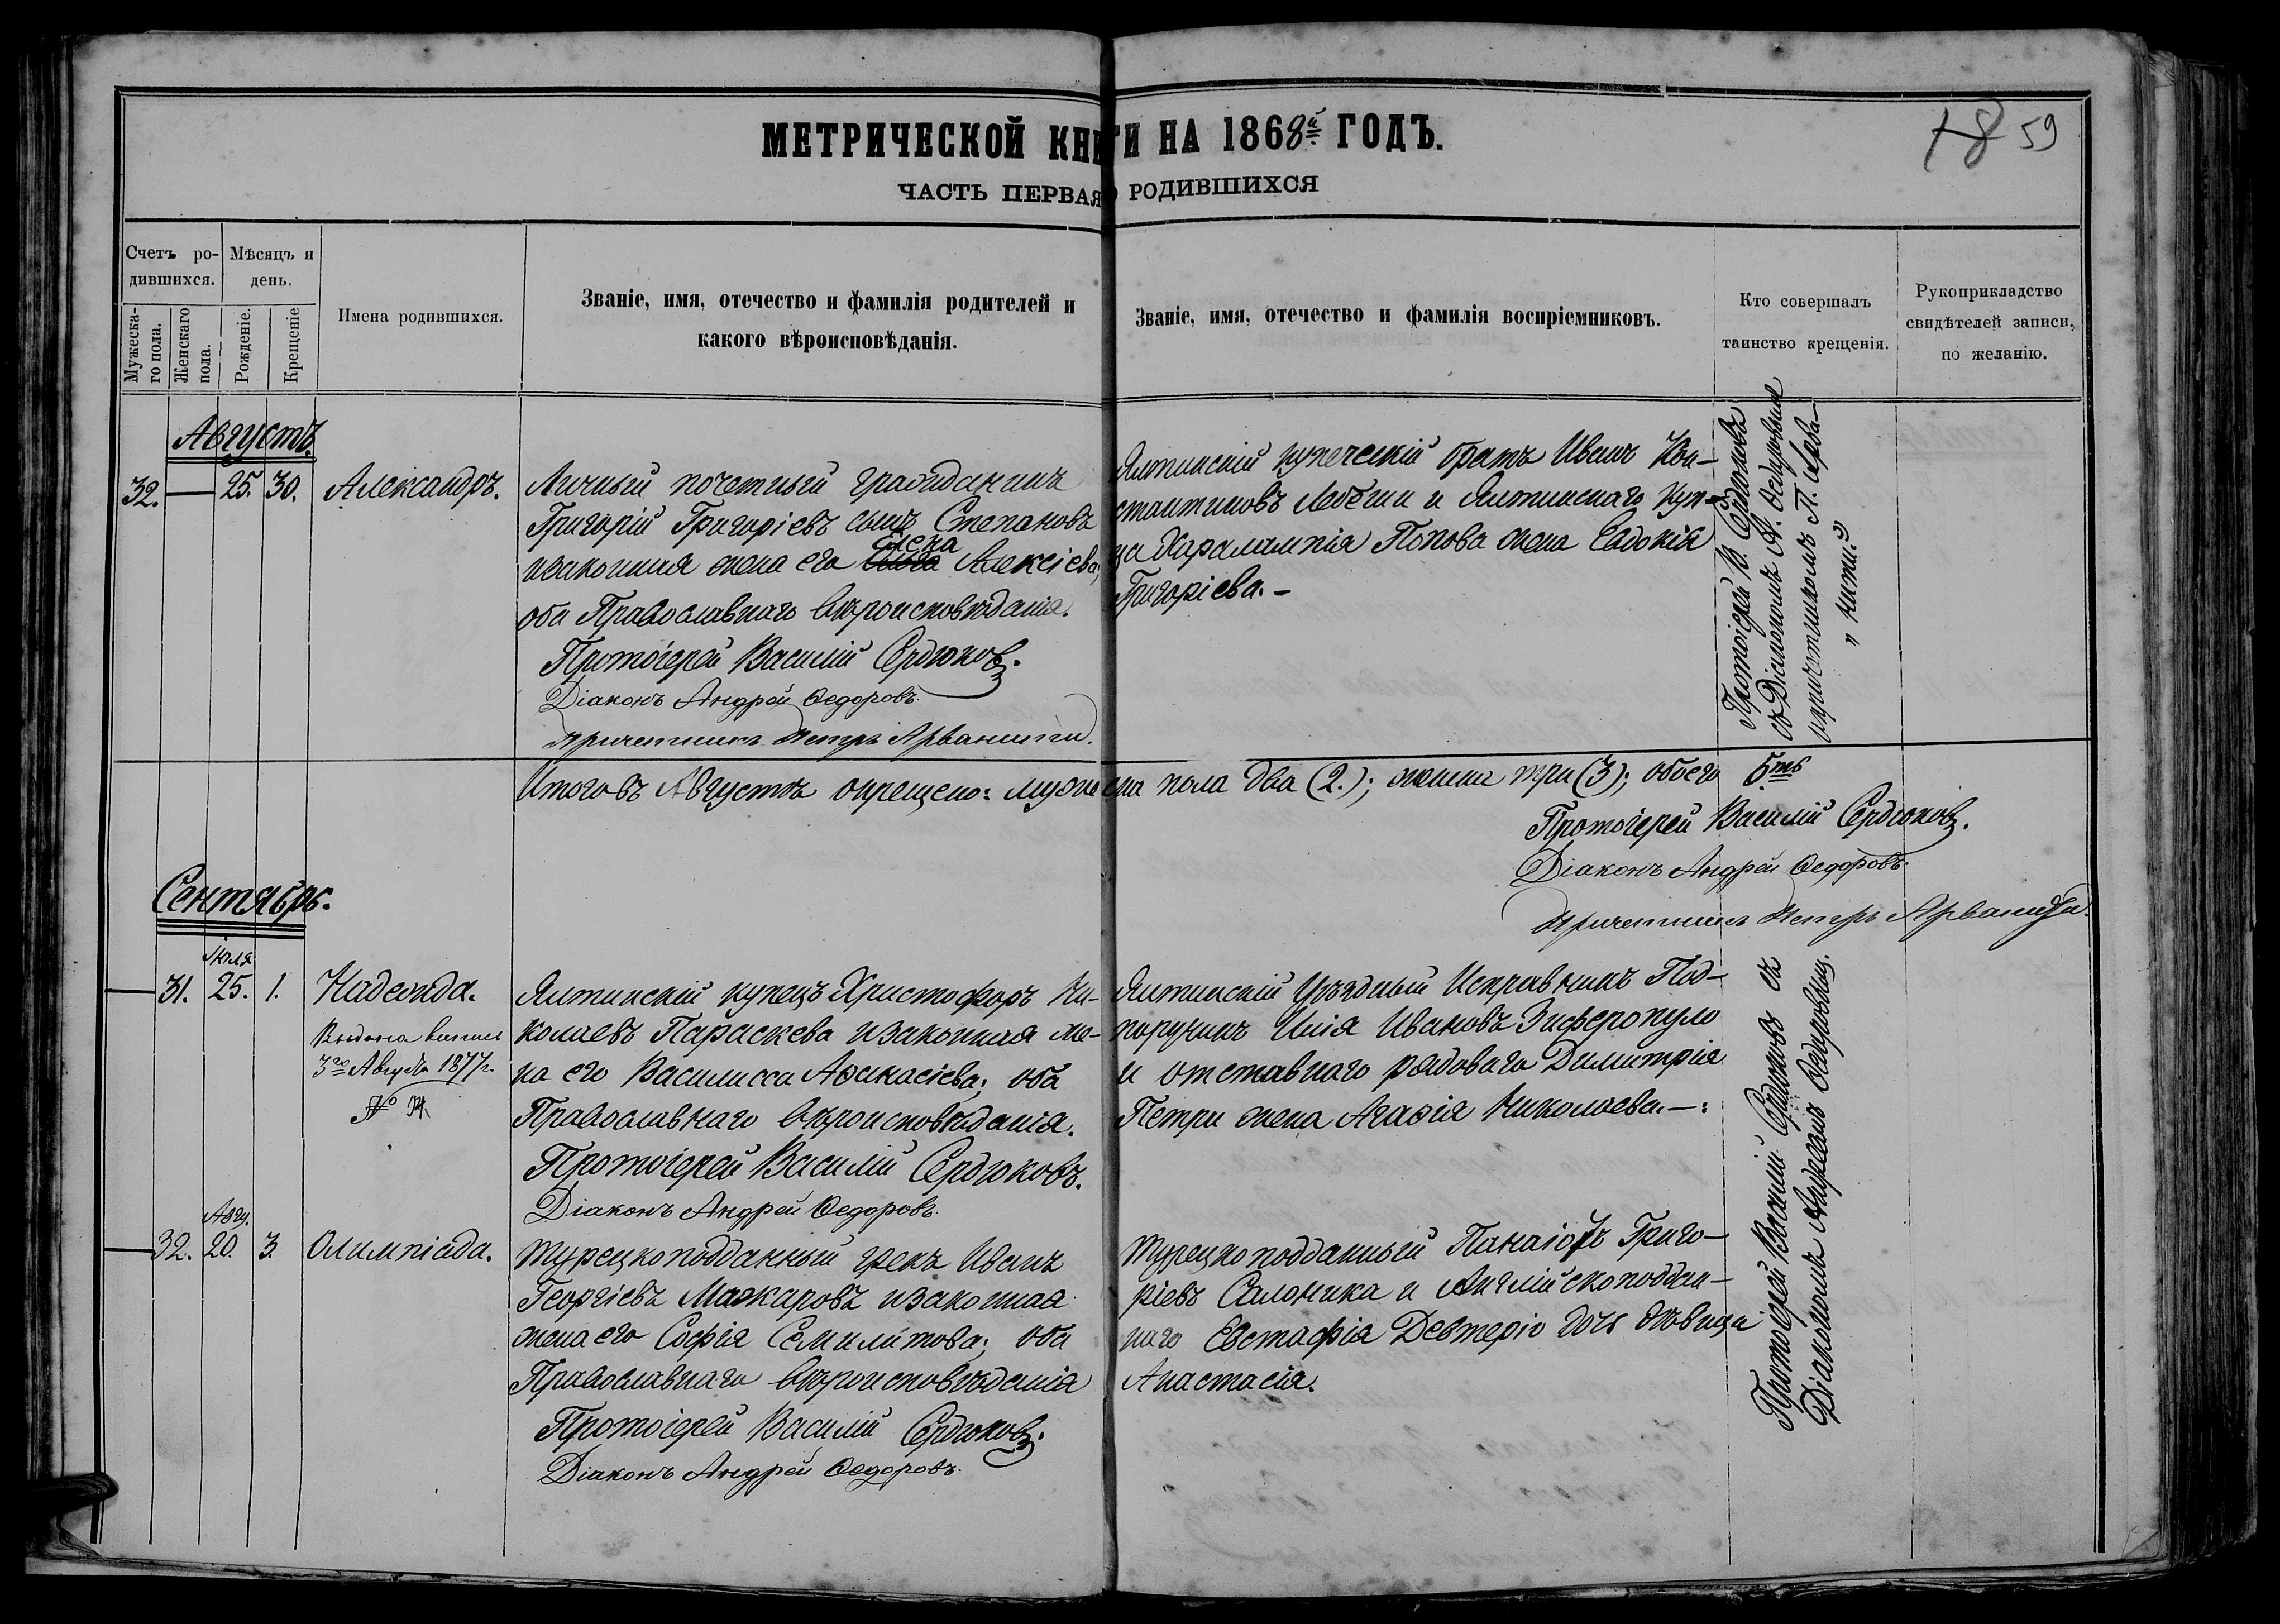 МЕТРИЧЕСКОЙ КНИГИ НА 1868й ГОДЪ.
78 59
ЧАСТЬ ПЕРВАЯ О РОДИВШИХСЯ
Счетъ ро-
дившихся.
Мѣсяцъ и
день.
Мужеска-
го пола.
Женскаго
пола.
Рожденіе.
Крещеніе
Имена родившихся.
Званіе, имя, отечество и фамилія родителей и
какого вѣроисповѣданія.
Званіе, имя, отечество и фамилія воспріемниковъ.
Кто совершалъ
таинство крещенія.
Рукоприкладство
свидѣтелей записи,
по желанію.
Августъ.
32. — 25. 30. Александръ.
Личный почетный гражданинъ
Григорій Григоріевъ сынъ Степановъ
изаконная жена его Елена Алексіева,
оба Православнаго вѣроисповѣданія.
Протоіерей Василій Сердюковъ.
Діаконъ Андрей Ѳедоровъ.
Причетникъ Петръ Арванити.
Ялтинскій купеческій братъ Иванъ Кон-
стантиновъ и Ялтинскаго куп-
ца Харалампія Попова жена Евдокія
Григоріева.-
Протоіерей В. Сердюковъ
съ Діакономъ А. Ѳедоровымъ
ипричетникомъ П. Арва-
"нити."
Итого въ Августѣ окрещено: мужеска пола два (2.); женска три (3); обоего 5ть
Протоіерей Василій Сердюковъ.
Діаконъ Андрей Ѳедоровъ.
Причетникъ Петръ Арванити.
Сентябрь.
Іюля
— 31. 25. 1. Надежда.
Выдана выпись
3го Августа 1877г.
№ 14.
Ялтинскій купецъ Христофоръ Ни-
колаевъ Параскева изаконная же-
на его Василисса Аѳанасіева; оба
Православнаго вѣроисповѣданія.
Протоіерей Василій Сердюковъ.
Діаконъ Андрей Ѳедоровъ.
Ялтинскій Уѣздный Исправникъ Под-
поручикъ Илія Ивановъ Зиферопуло
и отставнаго рядоваго Димитрія
Петри жена Агаѳія Николаева.—:
Авгу.
— 32. 20. 3. Олимпіада.
Турецкоподданный грекъ Иванъ
Георгіевъ Мажаровъ изаконная
жена его Софія Семилитова; оба
Православнаго вѣроисповѣданія
Протоіерей Василій Сердюковъ.
Діаконъ Андрей Ѳедоровъ.
Турецкоподданный Панаіотъ Григо-
ріевъ Салоника и Англійскоподдан-
наго Евстафія Девтеріо дочь дѣвица
Анастасія.
Протоіерей Василій Сердюковъ съ
Діакономъ Андреемъ Ѳедоровым.